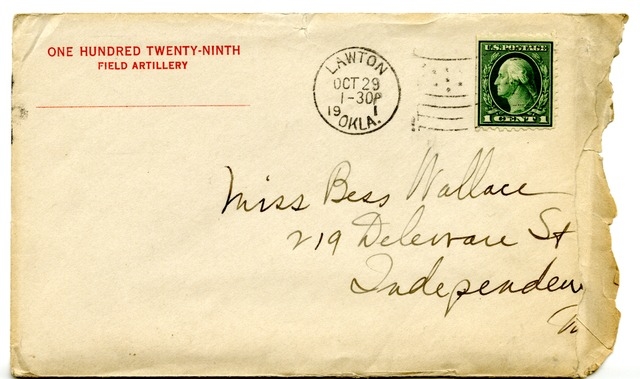 ONE HUNDRED TWENTY-NINTH
FIELD ARTILLERY
LAWTON
OCT 29
1-30P
19 1
OKLA.
U.S. POSTAGE
1 CENT 1
Miss Bess Wallace
219 Deleware St
Independen
M